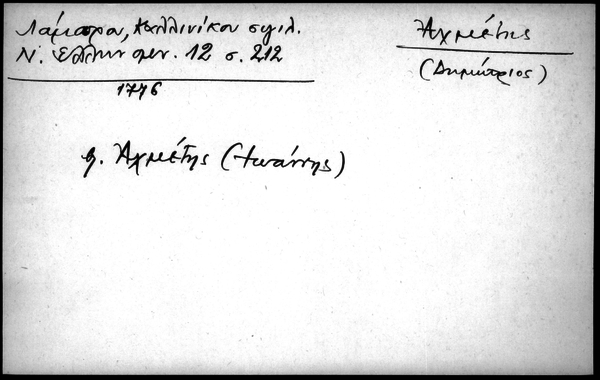 Λάμπρου, Καλλινίκου σιγιλ.
Ν. Ελλην μν. 12 σ. 212
1776
Αχμέτης
(Δημήτριος)
β. Αχμέτης (Ιωάννης)